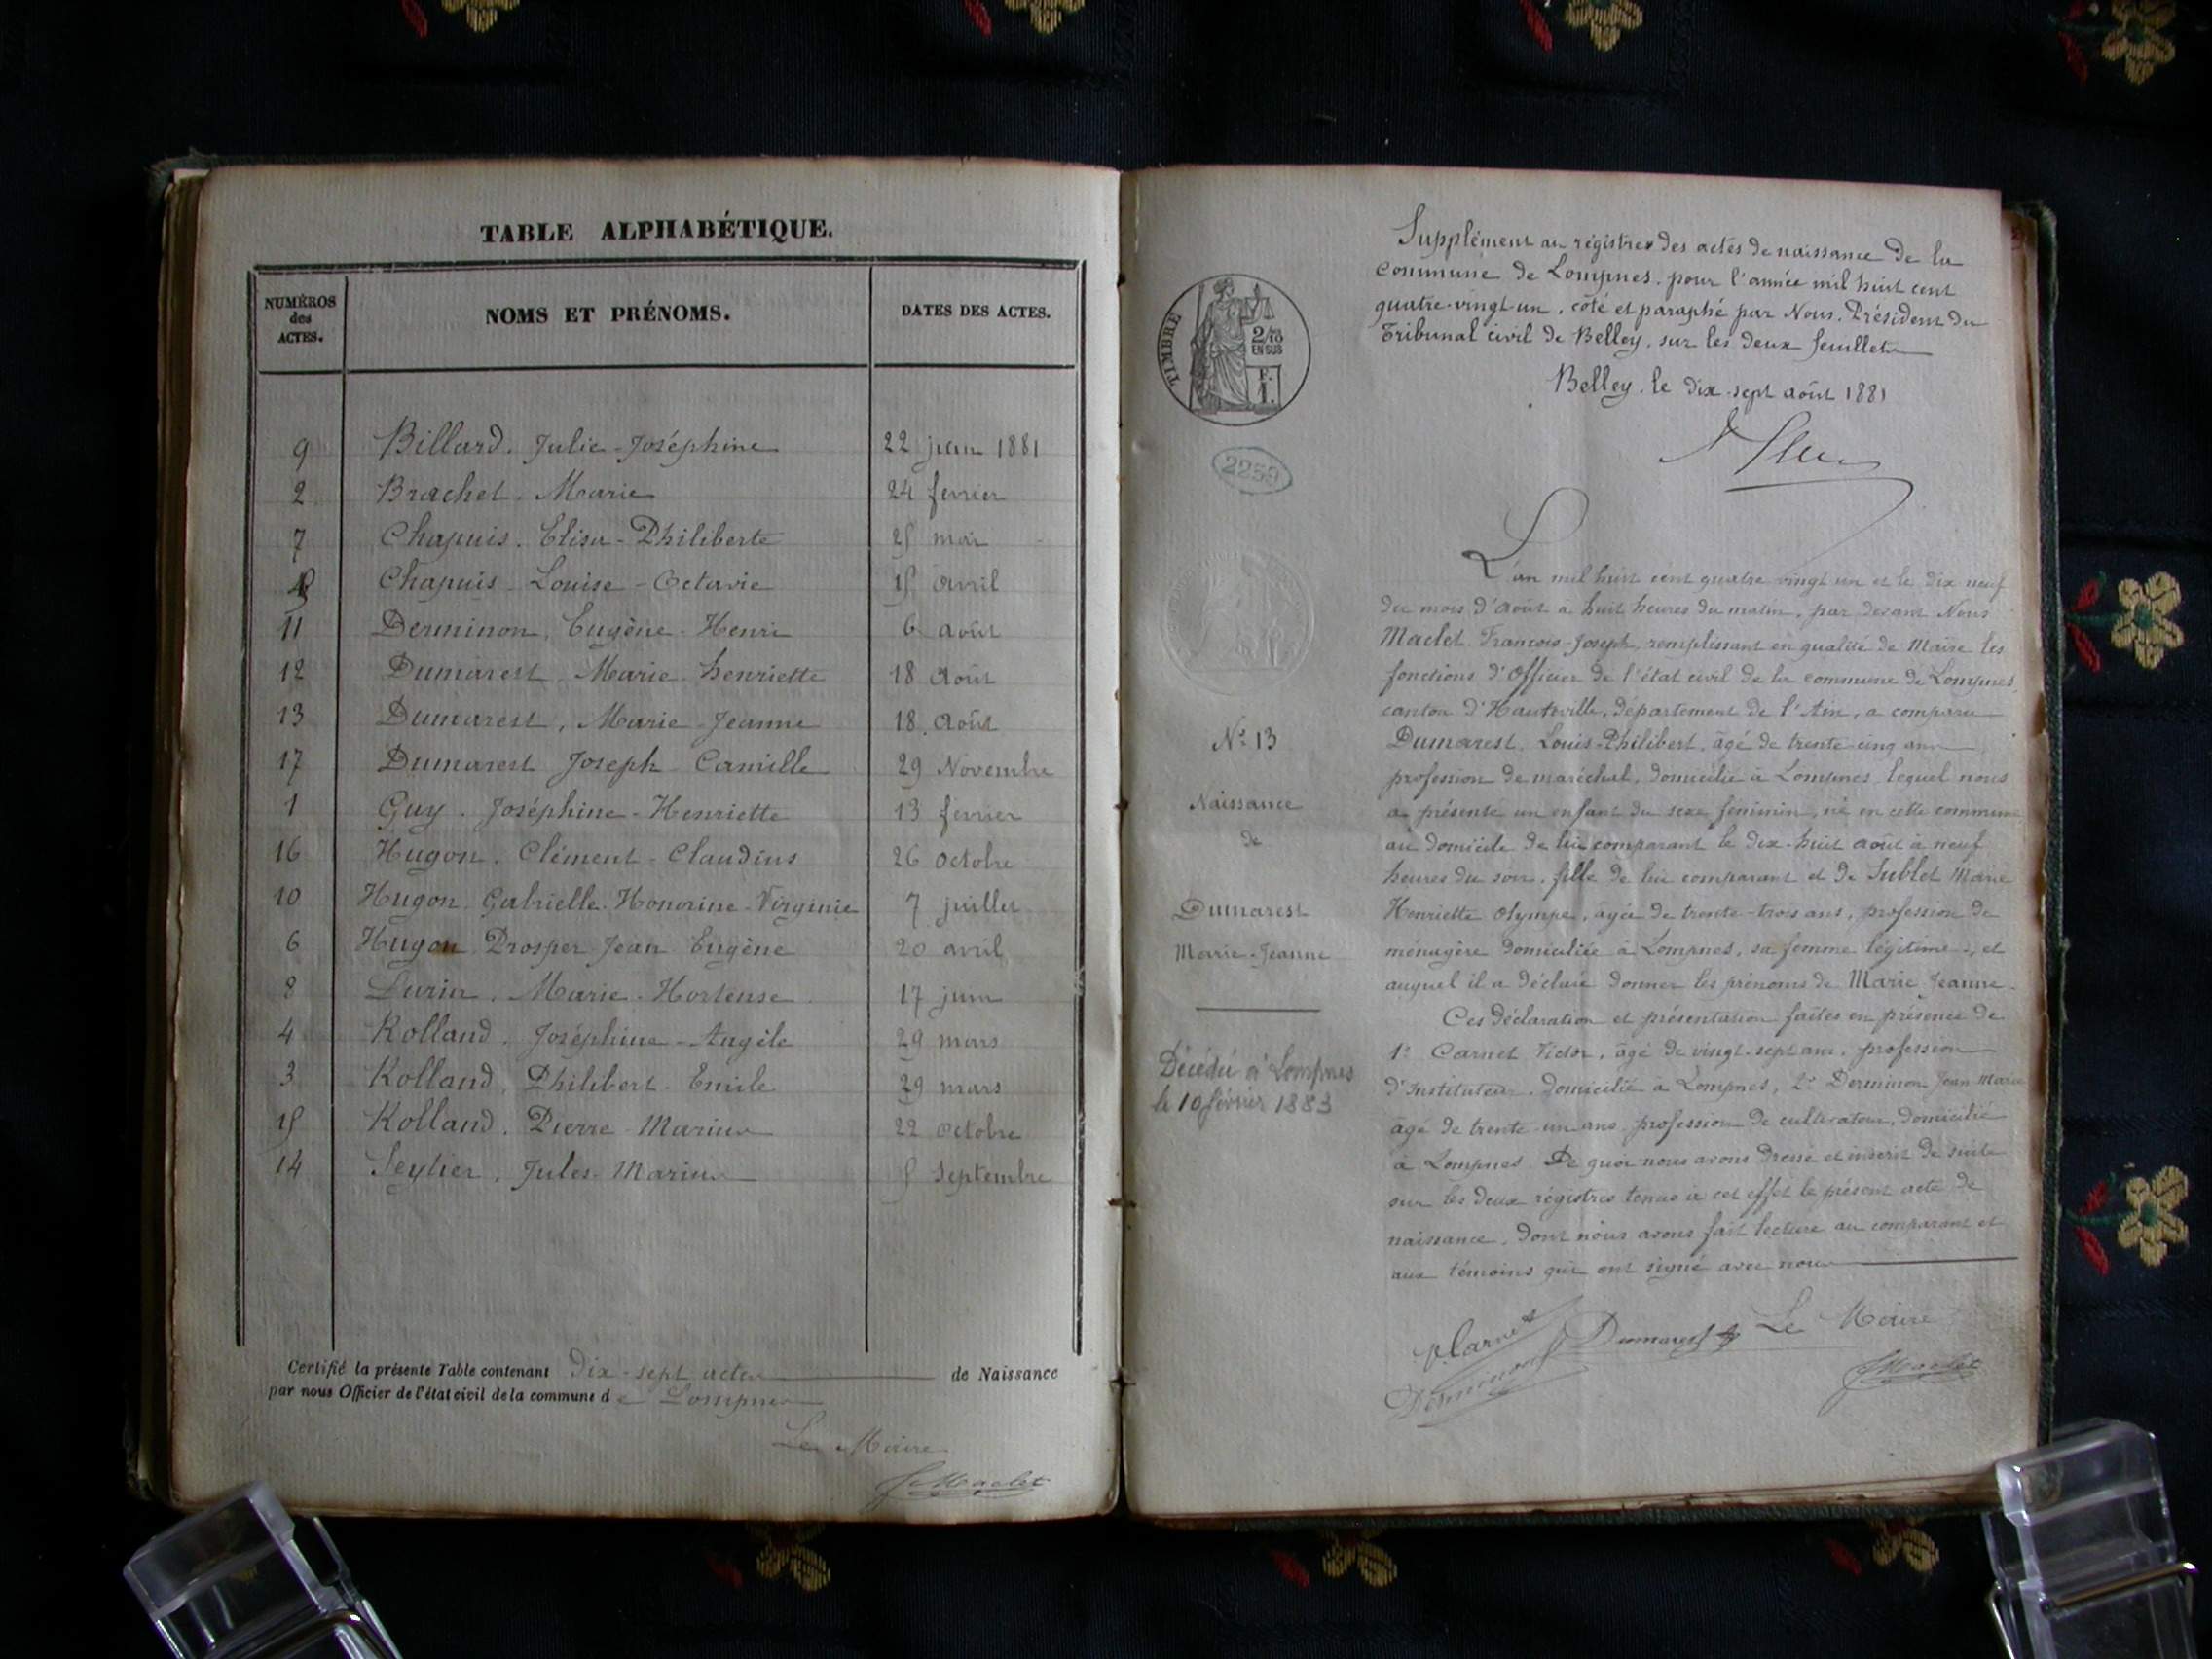 TABLE ALPHABÉTIQUE.
NUMÉROS des ACTES. NOMS ET PRÉNOMS. DATES DES ACTES.
9 Billard. Julie-Joséphine 22 juin 1881
2 Brachet. Marie 24 fevrier
7 Chapuis. Elisa-Philiberte 25 mai
5 Chapuis Louise-Octavie 15 avril
11 Derminon, Eugène-Henri 6 août
12 Dumarest, Marie-henriette 18 août
13 Dumarest, Marie-Jeanne 18 août
17 Dumarest Joseph Camille 29 Novembre
1 Guy. Joséphine-Henriette 13 fevrier
16 Hugon. Clément-Claudius 26 octobre
10 Hugon. Gabrielle-Honorine-Virginie 7 juillet
6 Hugon Prosper Jean Eugène 20 avril
8 Marie-Hortense 17 juin
4 Rolland. Joséphine-Angèle 29 mars
3 Rolland. Philibert-Emile 29 mars
15 Rolland. Pierre Marius 22 octobre
14 Seytier, Jules-Marius 5 Septembre
Certifié la présente Table contenant dix-sept actes de Naissance
par nous Officier de l'état civil de la commune de Lompnes
Le Maire
Maclet
TIMBRE
2/10
EN SUS
F.
1.
2259
Supplément au régistre des actes de naissance de la
commune de Lompnes, pour l'année mil huit cent
quatre-vingt-un, côté et paraphé par Nous, Président du
Tribunal civil de Belley, sur les deux feuillets
Belley, le dix-sept août 1881
N° 13
Naissance
de
Dumarest
Marie-Jeanne
Décédée à Lompnes
le 10 février 1883
L'an mil huit cent quatre vingt un et le dix neuf
du mois d'août à huit heures du matin, par devant Nous
Maclet François-Joseph, remplissant en qualité de Maire les
fonctions d'Officier de l'état civil de la commune de Lompnes,
canton d'Hauteville, département de l'Ain, a comparu
Dumarest, Louis-Philibert, âgé de trente-cinq ans
profession de maréchal, domicilié à Lompnes lequel nous
a présenté un enfant du sexe féminin, né en cette commune
au domicile de lui comparant le dix-huit août à neuf
heures du soir, fille de lui comparant et de Sublet Marie
Henriette Olympe, âgée de trente-trois ans, profession de
ménagère domiciliée à Lompnes, sa femme légitime, et
auquel il a déclaré donner les prénoms de Marie Jeanne.
Ces déclaration et présentation faites en présence de
1° Carnet Victor, âgé de vingt-sept ans, profession
d'instituteur, domicilié à Lompnes, 2° Derminon Jean Marie
âgé de trente-un ans, profession de cultivateur, domicilié
à Lompnes. De quoi nous avons dressé et inscrit de suite
sur les deux régistres tenus à cet effet le présent acte de
naissance, dont nous avons fait lecture au comparant et
aux témoins qui ont signé avec nous
V. Carnet Dumarest Le Maire
Derminon Maclet